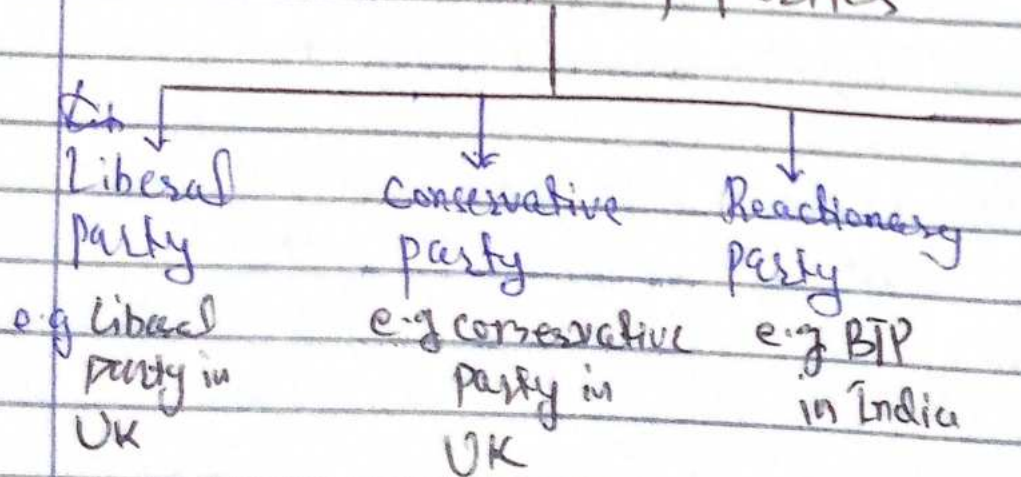 Liberal
party
e.g Liberal
party in
UK
Conservative
party
e.g conservative
party in
UK
Reactionary
party
e.g BJP
in India